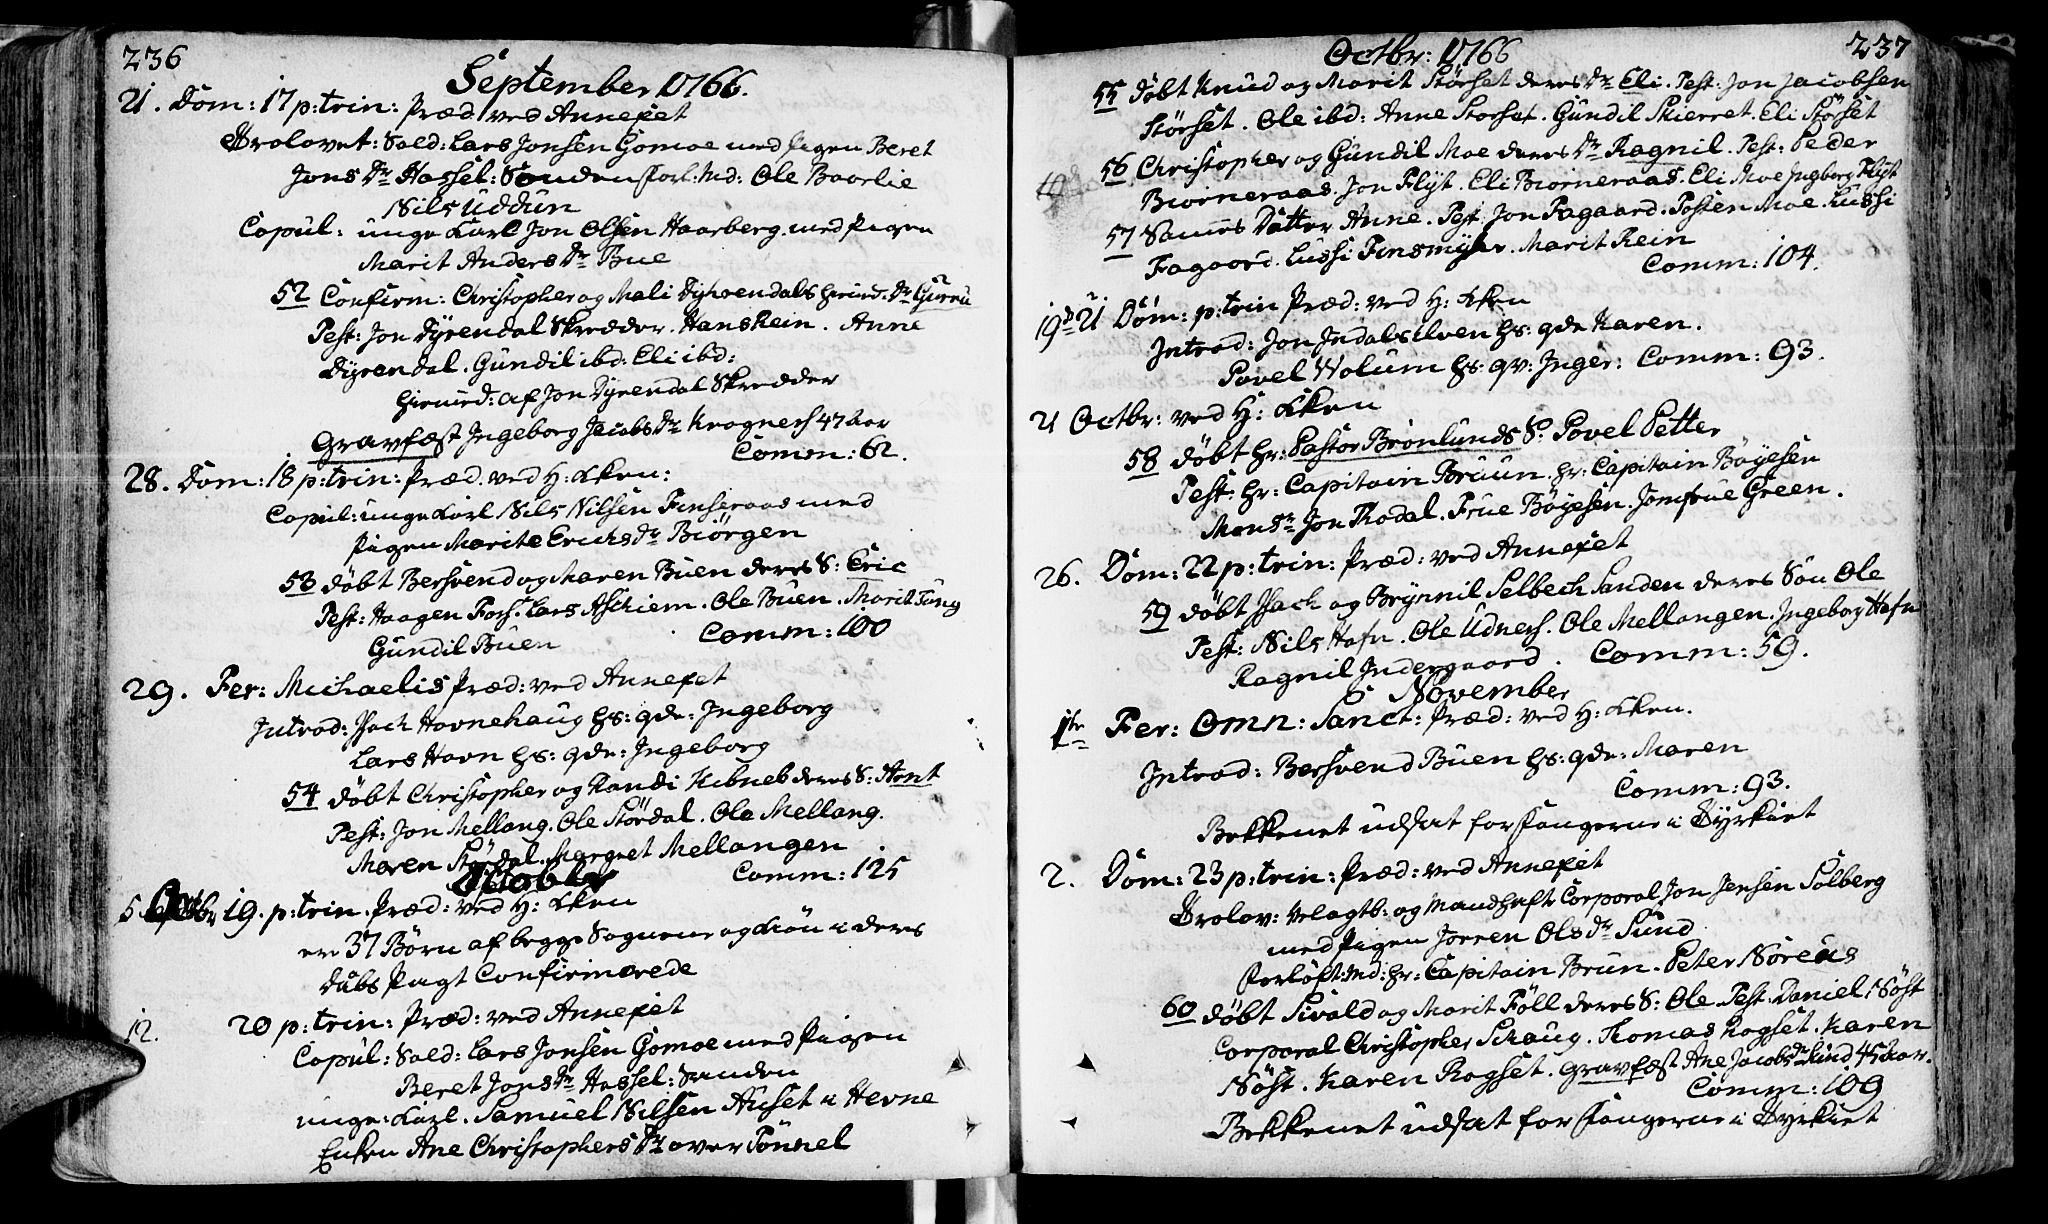 236
September 1766.
21. Dom: 17 p: trin: Præd ved Annexet
Trolovet: Sold: Lars Jonsen Gomoe med Pigen Beret
Jons Dr Hassel: Sanden forl: Md: Ole Baarlie
Nils Uddun
Copul: unge Karl Jon Olsen Haarberg med Pigen
Marit Anders Dr Bue
52 Confirm: Christopher og Mali Dyrendals hiemd. Dr Guru
Test: Jon Dyrendal Skredder. Hans Rein. Anne
Dyrendal. Gundil ibd: Eli ibd:
hiemd: af Jon Dyrendal Skredder
Gravfæst Ingeborg Jacobs Dr Kragnes 47 Aar
Comm: 62.
28. Dom: 18 p: trin: Præd. ved H: Kken:
Copul: unge Karl Nils Nilsen Finseraas med
Pigen Marite Erichs Dr Biörgen
53 döbt Bersvend og Maren Buen deres S: Eric
Test: Haagen Fors. Lars Aschiem. Ole Buen. Marit Tung
Gundil Buen Comm: 100
29. Fer: Michaelis Præd: ved Annexet
Introd: Isach Hovnehaug hs: qde: Ingeborg
Lars Havn hs: qde: Ingeborg
54 döbt Christopher og Randi Kibneb deres S: Arnt
Test: Jon Mellang. Ole Stördal. Ole Mellang.
Maren Stördal. Margret Mellangen
Comm: 125
October
5 Octbr 19. p: trin. Præd: ved H: Kken
ere 37 Börn af begge Sognene og Kiön i deres
Daabs Pagt Confirmerede
12. 20 p: trin: Præd: ved Annexet
Copul: Sold: Lars Jonsen Gomoe med Pigen
Beret Jons Dr Hassel: Sanden
unge: Karl. Samuel Nilsen Auset i Hevne
Enken Ane Christophers Dr over Tönnel
Octbr: 1766
237
55 döbt Knud og Marit Störset deres Dr Eli. Test: Jon Jacobsen
Störset. Ole ibd: Anne Storset. Gundil Skierret. Eli Störset
56 Christopher og Gundil Moe deres Dr Ragnil. Test: Peder
Biörneraas. Jon Flyt. Eli Biorneraas. Eli Moe Ingeborg Flyt
57 Datter Anne. Test: Jon Fagaard. Tosten Moe. Lussi
Fagaard. Lussi Finsmyhr. Marit Rein
Comm: 104.
19d 21 Dom: p: trin Præd: ved H: Kken
Introd: Jon Indalsilven hs: qde Karen.
Povel Wolum hs: qv: Inger: Comm: 93.
21 Octbr: ved H: Kken
58 döbt hr: Pastor Brönlunds S: Povel Petter
Test: hr: Capitain Bruun. hr: Capitain Böyesen
Monsr Jon Rodal. Frue Böyesen. Jomfrue Green.
26. Dom: 22 p: trin: Præd: ved Annexet
59 döbt Isach og Brynnil Selbech Sanden deres Sön Ole
Test: Nils Hafn. Ole Udnes. Ole Mellangen. Ingebor Hafn
Ragnil Indergaard. Comm: 59.
November
1ste Fer: Omn: Sanct: Præd: ved H: Kken.
Introd: Bersvend Buen hs: qde: Maren
Comm: 93.
Bekkenet udsat for Fangerne i Tyrkiet
2. Dom: 23 p: trin: Præd: ved Annexet
Trolov: Velagtb: og Mandhaft Corporal Jon Jensen Solberg
med Pigen Joren Ols Dr Sund
Forlöft: Md: hr: Capitain Brun. Peter Noreus
60 döbt Sivald og Marit Föll deres S: Ole Test: Daniel Nöst
Corporal Christopher Schaug. Thomas Rogset. Karen
Nöst. Karen Rogset. Gravfæst Ane Jacobs Dr Sund 45 Aar.
Comm: 109
Bekkenet udsat for Fangerne i Tyrkiet